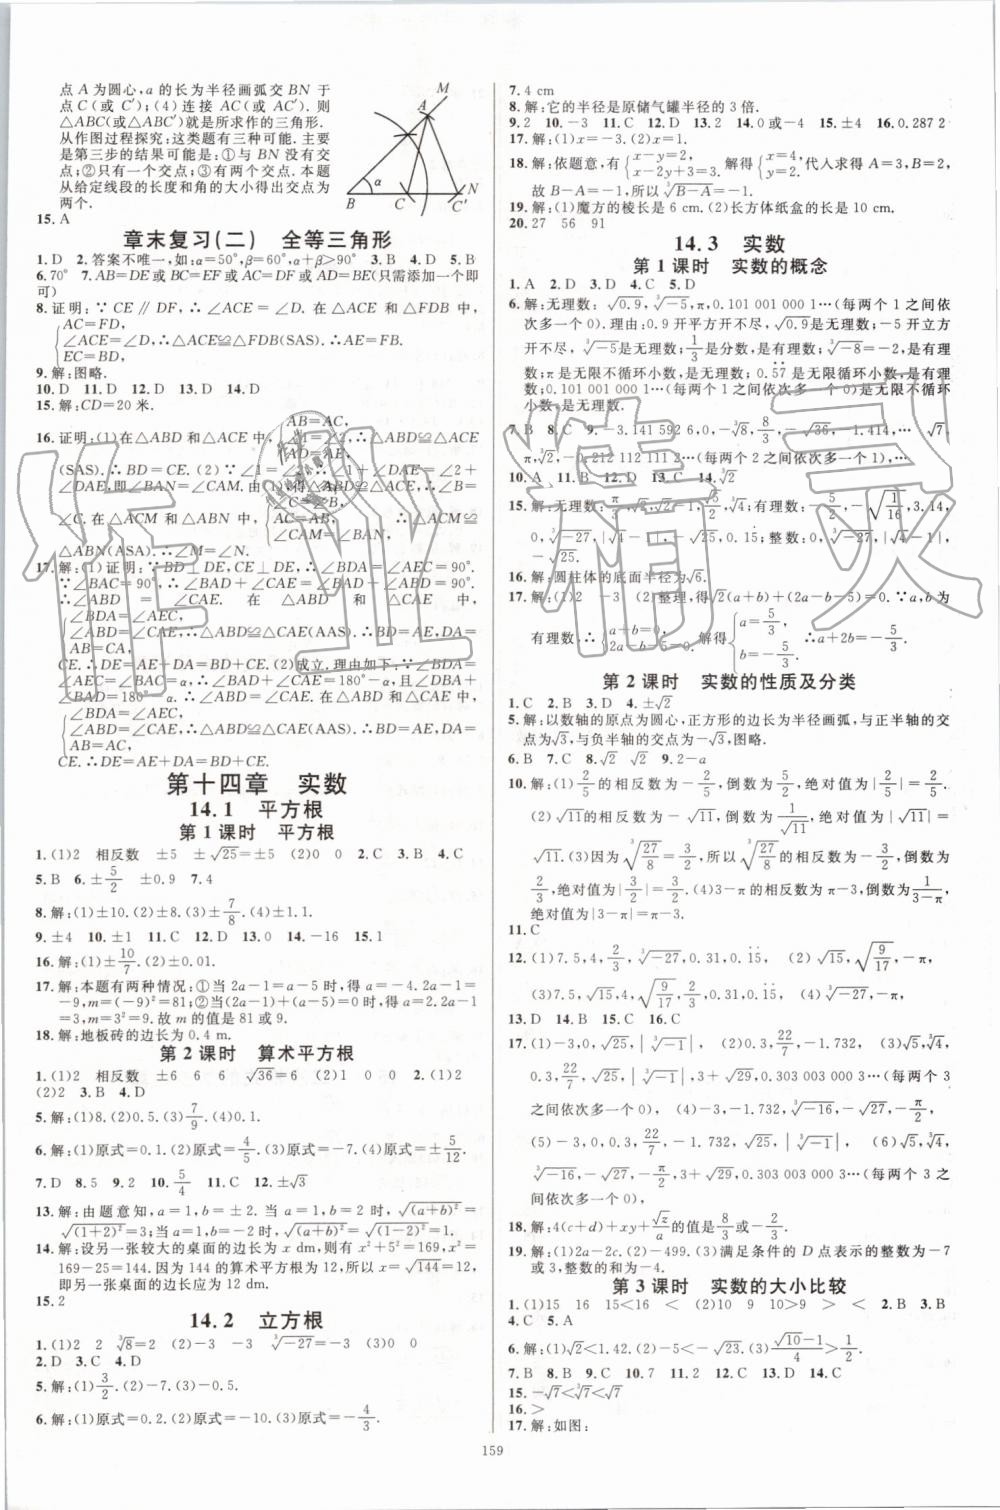 点 A 为圆心,a 的长为半径画弧交 BN 于
点 C(或 C′);(4)连接 AC(或 AC′).则
△ABC(或△ABC′)就是所求作的三角形.
从作图过程探究:这类题有三种可能.主要
是第三步的结果可能是:①与 BN 没有交
点;②只有一个交点;③有两个交点.本题
从给定线段的长度和角的大小得出交点为
两个.
M
A
α
B C C′ N
15. A
章末复习(二) 全等三角形
1. D 2. 答案不唯一,如:α=50°,β=60°,α+β>90° 3. B 4. D 5. B
6. 70° 7. AB=DE 或 BC=EF 或 AC=DF 或 AD=BE(只需添加一个即
可)
8. 证明:∵CE∥DF,∴∠ACE=∠D. 在△ACE 和△FDB 中,
AC=FD,
∠ACE=∠D,∴△ACE≌△FDB(SAS).∴AE=FB.
EC=BD,
9. 解:图略.
10. D 11. D 12. D 13. D 14. D
15. 解:CD=20 米.
16. 证明:(1)在△ABD 和△ACE 中,
AB=AC,
∠1=∠2,∴△ABD≌△ACE
AD=AE,
(SAS).∴BD=CE.(2)∵∠1=∠2,∴∠1+∠DAE=∠2+
∠DAE,即∠BAN=∠CAM. 由(1),得△ABD≌△ACE,∴∠B=
∠C. 在△ACM 和△ABN 中,
∠C=∠B,
AC=AB,
∠CAM=∠BAN,
∴△ACM≌△
ABN(ASA).∴∠M=∠N.
17. 解:(1)证明:∵BD⊥DE,CE⊥DE,∴∠BDA=∠AEC=90°.
∵∠BAC=90°,∴∠BAD+∠CAE=90°.∵∠BAD+∠ABD=
90°,∴∠ABD=∠CAE. 在△ABD 和△CAE 中,
∠BDA=∠AEC,
∠ABD=∠CAE,∴△ABD≌△CAE(AAS).∴BD=AE,AD=
AB=CA,
CE.∴DE=AE+DA=BD+CE.(2)成立.理由如下:∵∠BDA=
∠AEC=∠BAC=α,∴∠BAD+∠CAE=180°−α,且∠DBA+
∠BAD=180°−α,∴∠ABD=∠CAE. 在△ABD 和△CAE 中,
∠BDA=∠AEC,
∠ABD=∠CAE,∴△ABD≌△CAE(AAS).∴BD=AE,DA=
AB=AC,
CE.∴DE=AE+DA=BD+CE.
第十四章 实数
14.1 平方根
第 1 课时 平方根
1. (1)2 相反数 ±5 ±√25=±5 (2)0 0 2. C 3. B 4. C
5. B 6. ±5/2 ±0.9 7. 4
8. 解:(1)±10.(2)±8.(3)±7/8.
9. ±4 10. ±1 11. C 12. D 13. 0 14. −16 15. 1
16. 解:(1)±10/7.(2)±0.01.
17. 解:本题有两种情况:①当 2a−1=a−5 时,得 a=−4.2a−1=
−9,m=(−9)²=81;②当(2a−1)+(a−5)=0 时,得 a=2.2a−1
=3,m=3²=9.故 m 的值是 81 或 9.
18. 解:地板砖的边长为 0.4 m.
第 2 课时 算术平方根
1. (1)2 相反数 ±6 6 6 √36=6 (2)1 0 0 2. (1)2
(2)2 3. B 4. D
5. 解:(1)8.(2)0.5.(3)7/9.(4)0.1.
6. 解:(1)原式=0.1.(2)原式=4/5.(3)原式=−7.(4)原式=±5/12.
7. D 8. 5 9. 2 10. 5/4 11. C 12. ±√3
13. 解:由题意知,a=1,b=±2.当 a=1,b=2 时,√(a+b)²=
√(1+2)²=3;当 a=1,b=−2 时,√(a+b)²=√(1−2)²=1.
14. 解:设另一张较大的桌面的边长为 x dm,则有 x²+5²=169,x²=
169−25=144.因为 144 的算术平方根为 12,所以 x=√144=12,
即另一张桌面的边长应为 12 dm.
15. 2
14.2 立方根
1. (1)2 2 ∛8=2 (2)−3 −3 ∛−27=−3 (3)0 0
2. D 3. C 4. D
5. 解:(1)3/2.(2)−7.(3)−0.5.
6. 解:(1)原式=0.2.(2)原式=−10.(3)原式=−4/3.
7. 4 cm
8. 解:它的半径是原储气罐半径的 3 倍.
9. 2 10. −3 11. C 12. D 13. 2 14. 0 或−4 15. ±4 16. 0.287 2
17. 解:(1)x=−3.(2)x=1.
18. 解:依题意,有{x−y=2, x−2y+3=3. 解得{x=4, y=2.代入求得 A=3,B=2,
故 B−A=−1,所以∛B−A=−1.
19. 解:(1)魔方的棱长是 6 cm.(2)长方体纸盒的长是 10 cm.
20. 27 56 91
14.3 实数
第 1 课时 实数的概念
1. A 2. D 3. D 4. C 5. D
6. 解:无理数:√0.9,∛−5,π,0.101 001 000 1…(每两个 1 之间依
次多一个 0).理由:0.9 开平方开不尽,√0.9是无理数;−5 开立方
开不尽,∛−5是无理数;1/3是分数,是有理数;∛−8=−2,是有理
数;π 是无限不循环小数,是无理数;0.5̇7̇ 是无限循环小数,是有理
数;0.101 001 000 1…(每两个 1 之间依次多一个 0)是无限不循环
小数,是无理数.
7. B 8. C 9. −3.141 592 6,0,−∛8,2/3,−√36,−1.414,… √7,
π,∛2,−0.212 112 111 2…(每两个 2 之间依次多一个 1),…
10. A 11. B 12. D 13. C 14. ∛2
15. 解:无理数:π/2,√2,√2−1,π/5,∛2;有理数:5/2,−√1/16,3.14,
0,∛−27,|√4−1|,−√25,0.1̇5̇;整数:0,∛−27,|√4−1|,
−√25.
16. 解:圆柱体的底面半径为√6.
17. 解:(1)2 −3 (2)整理,得√2(a+b)+(2a−b−5)=0.∵a,b为
有理数,∴{a+b=0, 2a−b−5=0. 解得{a=5/3, b=−5/3. ∴a+2b=−5/3.
第 2 课时 实数的性质及分类
1. C 2. B 3. D 4. ±√2
5. 解:以数轴的原点为圆心,正方形的边长为半径画弧,与正半轴的交
点为√3,与负半轴的交点为−√3,图略.
6. B 7. C 8. √2 √2 9. 2−a
10. 解:(1)2/5的相反数为−2/5,倒数为5/2,绝对值为|2/5|=2/5.
(2)√11的相反数为−√11,倒数为1/√11,绝对值为|√11|=
√11.(3)因为∛27/8=3/2,所以∛27/8的相反数为−3/2,倒数为
2/3,绝对值为|3/2|=3/2.(4)3−π 的相反数为 π−3,倒数为1/3−π,
绝对值为|3−π|=π−3.
11. C
12. (1)7.5,4,2/3,∛−27,0.31,0.1̇5̇ (2)√15,√9/17,−π,
(3)7.5,√15,4,√9/17,2/3,0.31,0.1̇5̇ (4)∛−27,−π,
13. D 14. B 15. C 16. C
17. (1)−3,0,√25,|∛−1| (2)0.3,22/7,−1.732, (3)√5,∛4,
0.3,22/7,√25,|∛−1|,π/3+√29,0.303 003 000 3…(每两个 3
之间依次多一个 0), (4)−3,−1.732,∛−16,−√27,−π/2,
(5)−3,0,0.3,22/7,−1.732,√25,|∛−1|, (6)√5,∛4,
∛−16,−√27,−π/2,π/3+√29,0.303 003 000 3…(每两个 3 之
间依次多一个 0),
18. 解:4(c+d)+xy+√z/a的值是8/3或−2/3.
19. 解:(1)2a−2c.(2)−499.(3)满足条件的 D 点表示的整数为−7
或 3,整数和为−4.
第 3 课时 实数的大小比较
1. (1)15 16 15<16 < (2)10 9 10>9 > 2. B 3. B
4. C 5. A
6. 解:(1)√2<1.42.(2)−√6>−∛15.(3)√10−1/4>1/2.
7. B 8. B 9. C 10. 7 11. 2 12. C 13. B 14. B
15. −√7<∛7<√7
16. >
17. 解:如图:
159
作业精灵